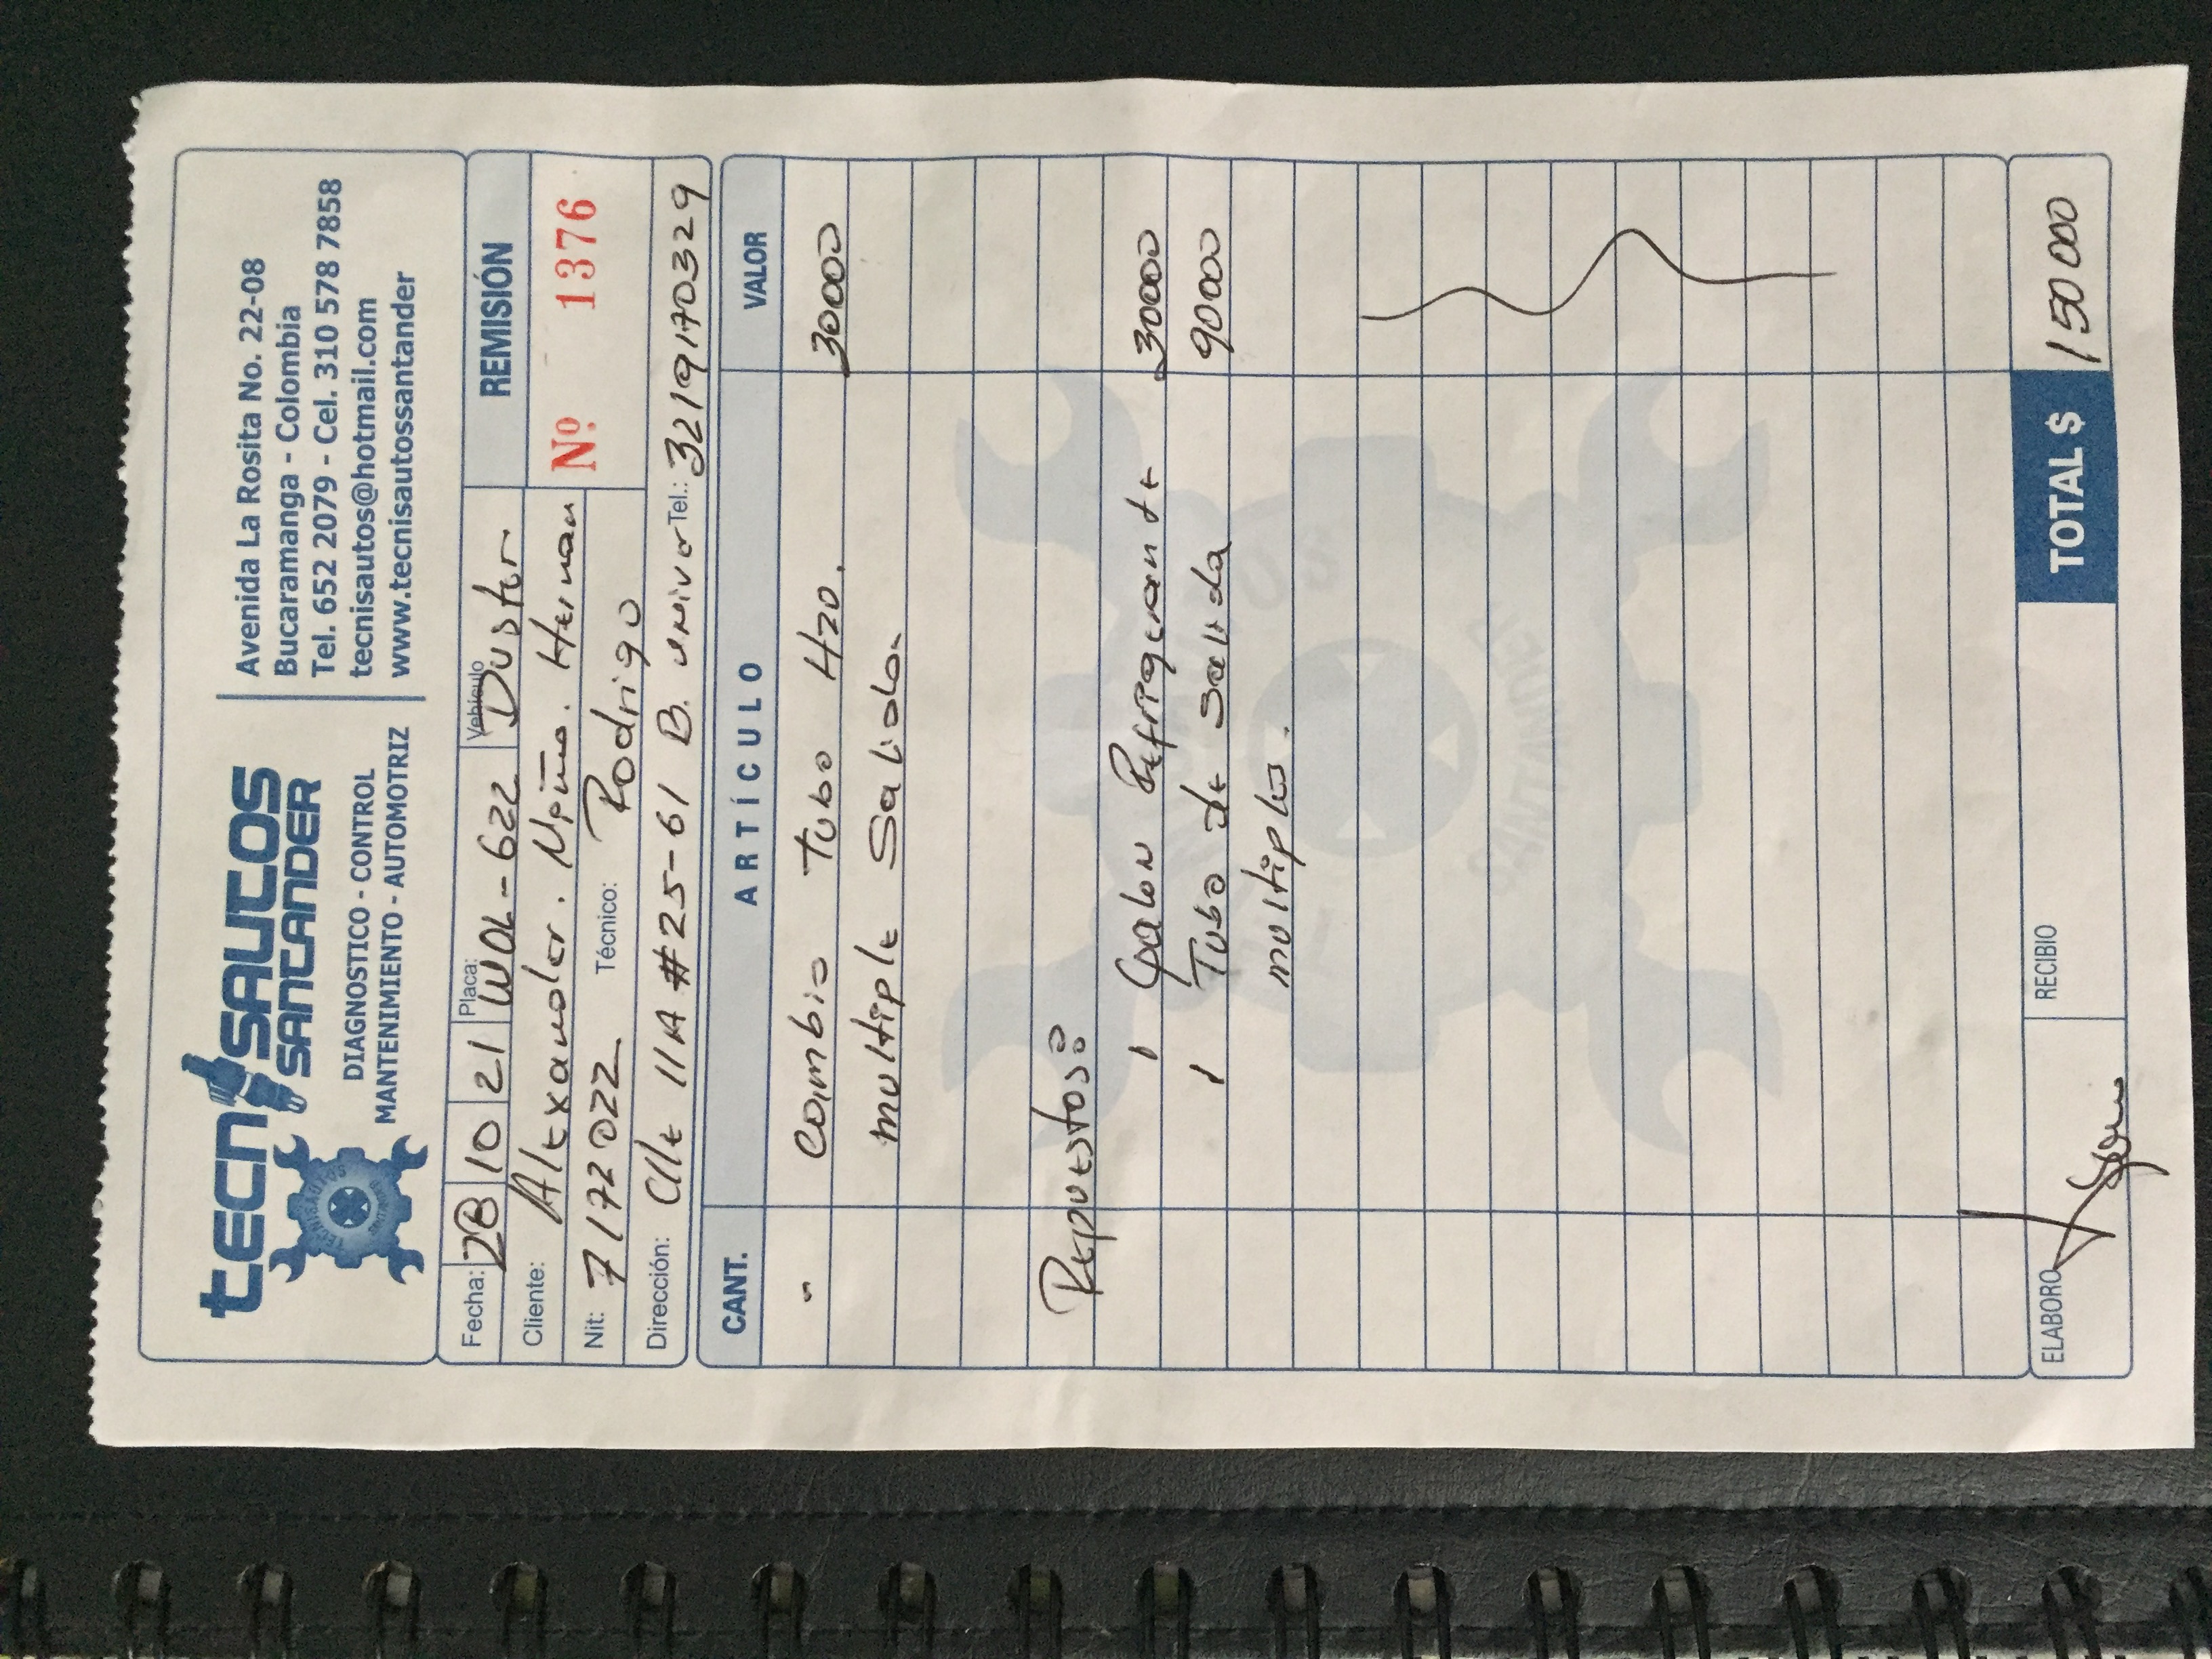 TECNISAUTOS
SANTANDER
DIAGNOSTICO - CONTROL
MANTENIMIENTO - AUTOMOTRIZ
Avenida La Rosita No. 22-08
Bucaramanga - Colombia
Tel. 652 2079 - Cel. 310 578 7858
tecnisautos@hotmail.com
www.tecnisautossantander
Fecha: 28 10 21 Placa: WOL-622 Vehículo Duster
REMISIÓN
Nº 1376
Cliente: Alexander. Hernan
Nit: 7172022 Técnico: Rodrigo
Dirección: Clle 11A #25-61 B. univer Tel.: 3219170329
CANT. ARTÍCULO VALOR
- Cambio Tubo H20. 30000
multiple Salida.
Repuestos:
1 Galon Refrigerante 30000
1 Tubo de Salida 90000
multiple.
ELABORO RECIBIO TOTAL $ 150000